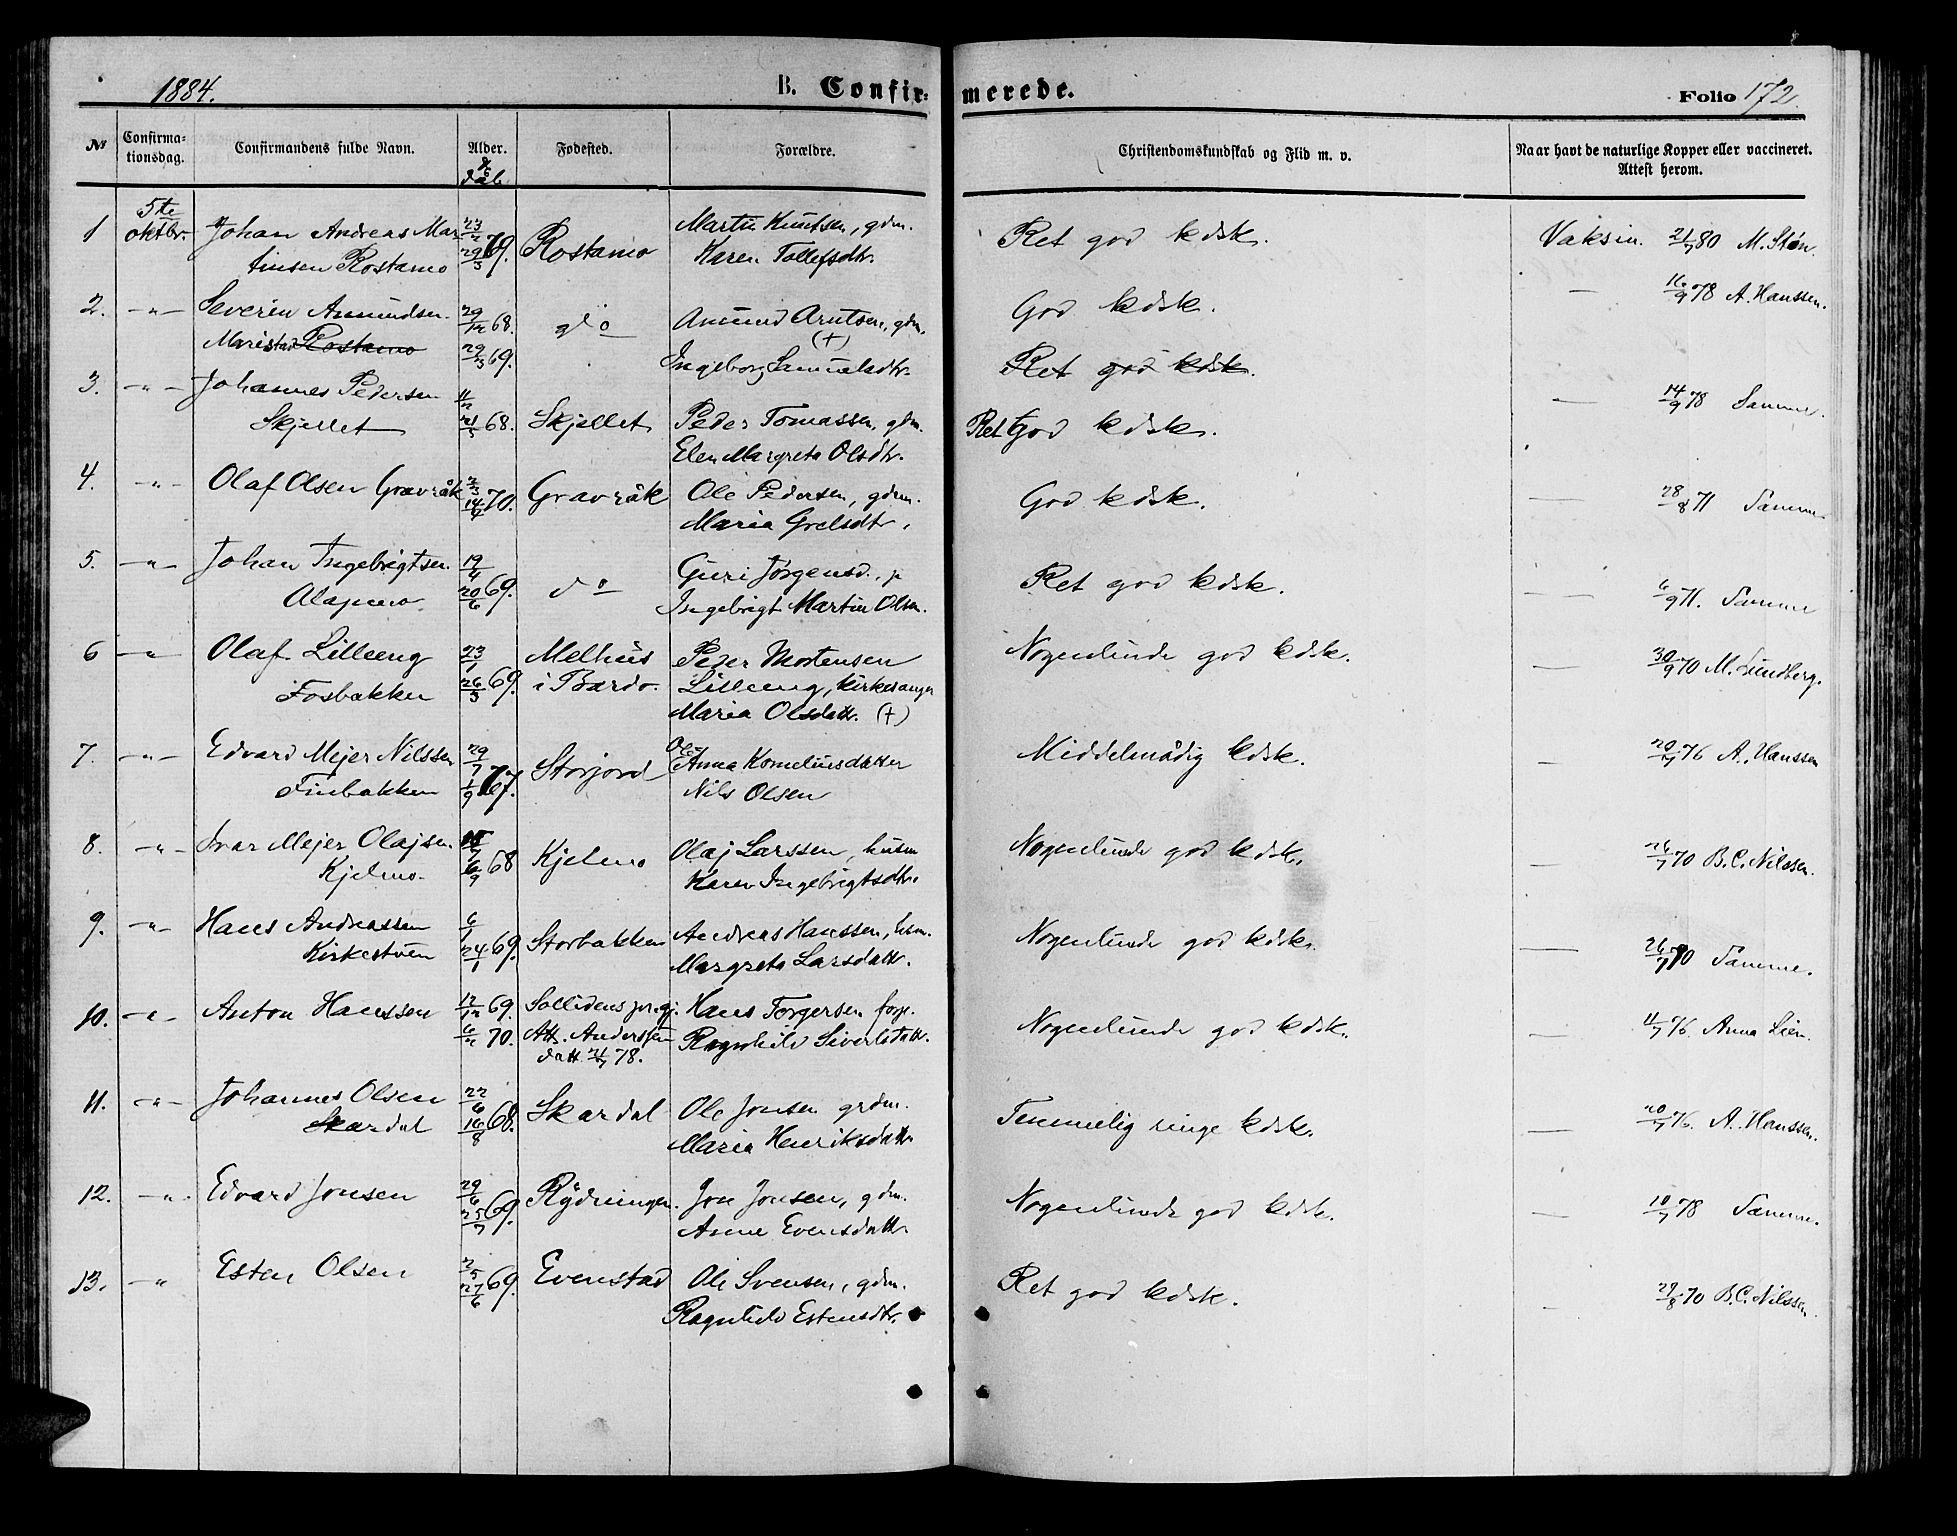 1884. B. Confirmerede. Folio 172.
№ Confirmationsdag. Confirmandens fulde Navn. Alder. & dåb Fødested. Forældre. Christendomskundskab og Flid m. v. Naar havt de naturlige Kopper eller vaccineret. Attest herom.
1 5te oktbr. Johan Andreas Mar 69. Rostamo Martin Knutsen, gdm. Ret god kdsk. Vaksin. 21/7 80 M. Støn.
tinsen Rostamo 29/3 Karen Tollefsdtr.
2. -"- Severin Amundsen 29/12 68. do Amund Arntsen, gdm. (+) God kdsk. — 16/9 78 A. Hanssen.
Maristad Rostamo 29/3 69. Ingeborg Samuelsdtr. Ret god kdsk.
3. -"- Johannes Pedersen — 14/9 78 Samme.
Skjellet 21/5 68. Skjellet Peder Tomassen, gdm. Ret God kdsk.
Elen Margreta Olsdtr.
4. -"- Olaf Olsen Gravråk 70. Gravråk Ole Pedersen, gdm. God kdsk. — 28/8 71 Samme
14/4 Maria Grelsdtr.
5. -"- Johan Ingebrigtsen 19/4 Guri Jørgensd., p Ret god kdsk. — 6/9 71. Samme
20/6 69. do Ingebrigt Martin Olsen.
6 -"- Olaf Lilleeng 23/1 Melhus Peder Mortensen Nogenlunde god kdsk. — 30/9 70 M. Lundberg.
Fosbakken 26/3 69. i Bardo. Lilleeng, kirkesanger
Maria Olsdatr. (+)
7. -"- Edvard Mejer Nilssen 29/7 Storjord Anna Korneliusdatter Middelmådig kdsk. — 20/7 76 A. Hanssen
Finbakken 1/9 67. Nils Olsen
8. -"- Ivar Mejer Olajsen Kjelmo Olaj Larssen, husm Nogenlunde god kdsk. — 26/7 70 B.C. Nilssen.
Kjelmo. 6/9 68 Karen Ingebrigtsdtr.
9. -"- Hans Andreassen 6/1 Storbakken Andreas Hanssen, hsm. Nogenlunde god kdsk. — 26/7 70 Samme.
Kirkestuen 24/1 69. Margreta Larsdatr.
10. -"- Anton Hanssen 12/12 69. Hans Torgersen forp. Nogenlunde god kdsk. — 11/7 76. Anna Lien.
6/2 70. Att. Anderssen Ragnhild Sivertsdatr.
datt. 21/7 78.
11. -"- Johannes Olsen 22/6 Skardal Ole Jonsen grdm. Temmelig ringe kdsk. — 20/7 76. A. Hanssen.
Skardal 16/8 68. Maria Henriksdatr.
12. -"- Edvard Jonsen 29/6 Rydningen. Jon Jonsen, gdm. Nogenlunde god kdsk. — 10/7 78 Samme.
25/7 69. Anne Evensdatr.
13. -"- Esten Olsen 2/5 69. Evenstad Ole Svensen, gdm. Ret god kdsk. — 29/8 70 B.C. Nilssen
27/6 Ragnhild Estensdtr.